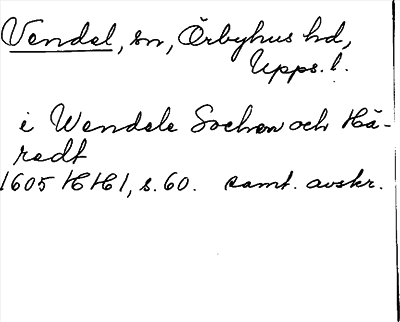 Vendel, sn, Örbyhus hd,
Upps. l.
i Wendele Sochen och Hä-
redt
1605 HH1, s. 60. samt. avskr.